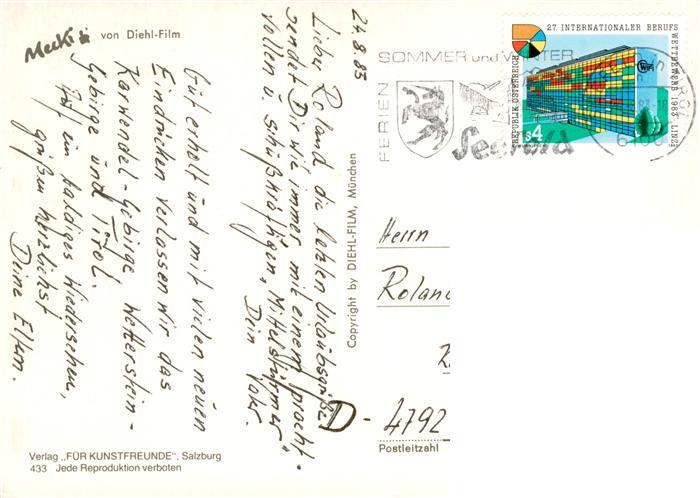 Mecki von Diehl-Film
24.8.83
Lieber Roland, die letzten Urlaubsgrüße
sendet Dir wie immer mit einem pracht-
vollen u. schußkräftigen „Mittelstürmer"
Dein Vater.
Gut erholt und mit vielen neuen
Eindrücken verlassen wir das
Karwendel-Gebirge, Wetterstein-
Gebirge und Tirol.
Auf ein baldiges Wiedersehen,
grüßen herzlichst
Deine Eltern.
Verlag „FÜR KUNSTFREUNDE", Salzburg
433 Jede Reproduktion verboten
Copyright by DIEHL-FILM, München
FERIEN
SOMMER und WINTER
Seefeld
27. INTERNATIONALER BERUFS
WETTBEWERB 1983 LINZ
REPUBLIK ÖSTERREICH
S4
WIFI
Herrn
Roland
D-4792
Postleitzahl